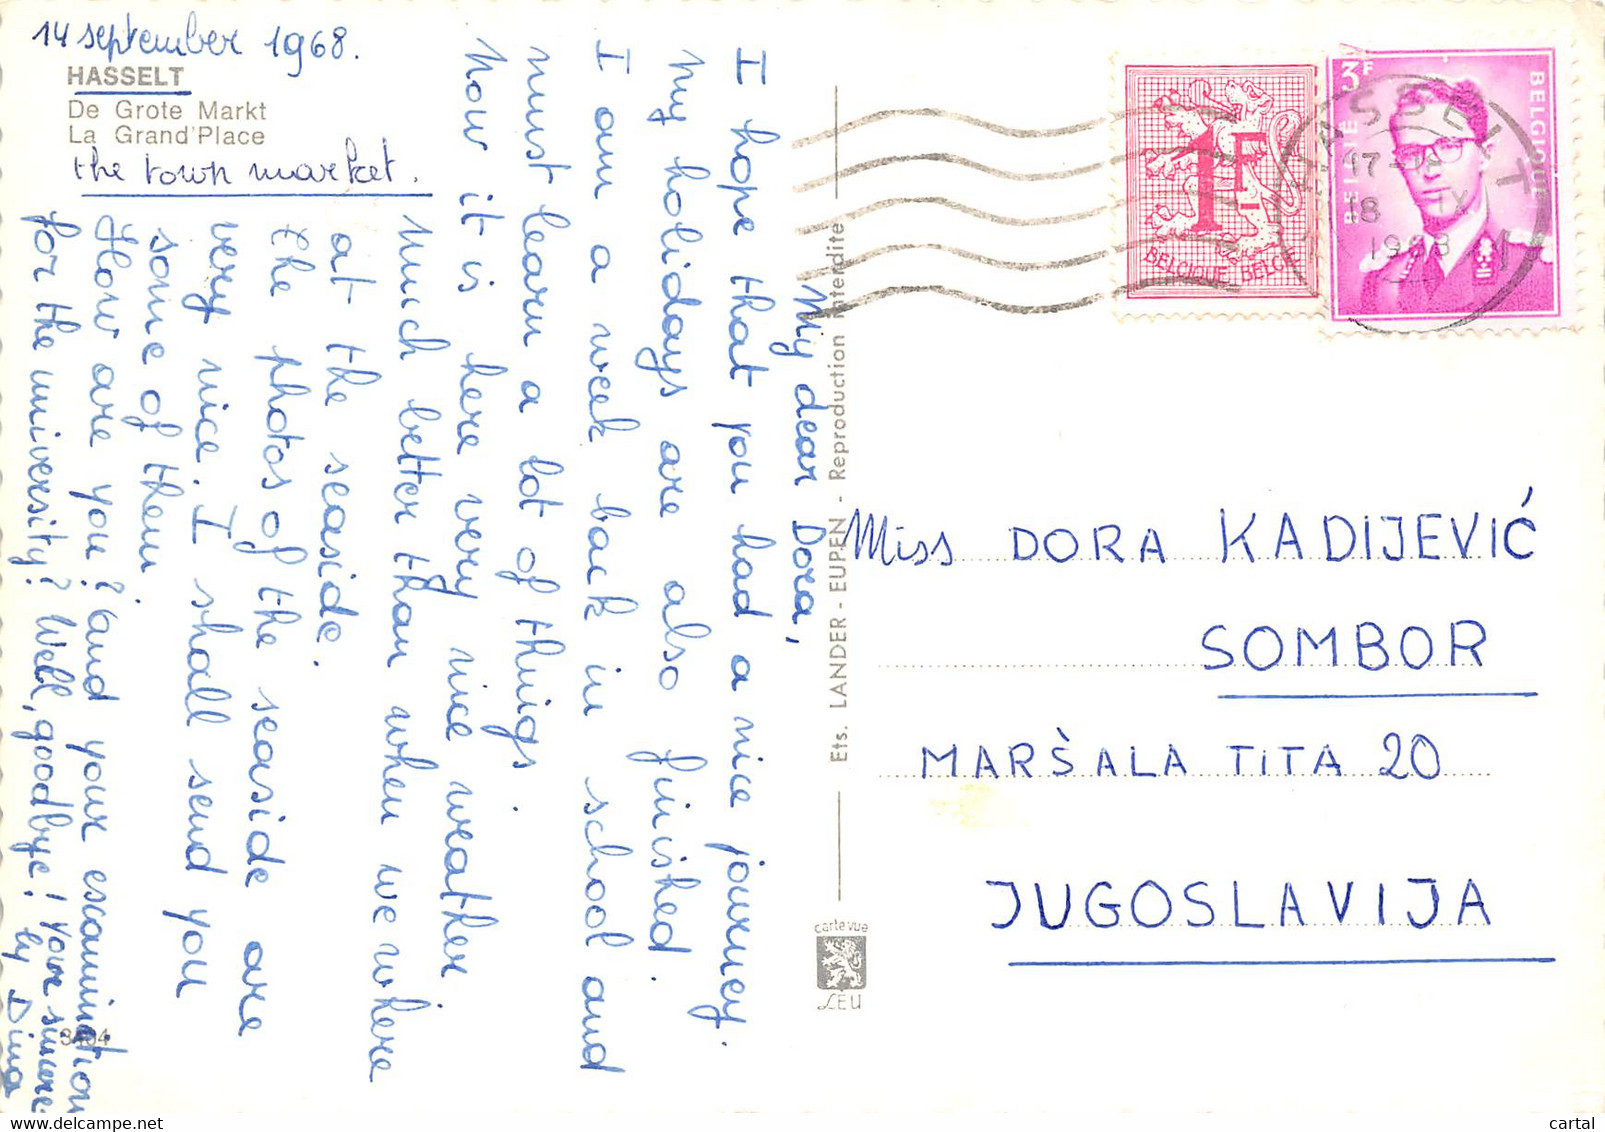 14 september 1968.
HASSELT
De Grote Markt
La Grand'Place
the town market.
My dear Dora,
I hope that you had a nice journey.
My holidays are also finished.
I am a week back in school and
must learn a lot of things.
Now it is here very nice weather
Much better than when we where
at the seaside.
the photos of the seaside are
very nice. I shall send you
some of them
How are you? and your examination
for the university? Well, goodbye! Your sincere
ly Dina
3404
Ets. LANDER - EUPEN - Reproduction interdite
carte vue
LEU
1F
BELGIQUE BELGIE
3F
BELGIE
BELGIQUE
HASSELT
17-18
18 IX
1968
Miss DORA KADIJEVIĆ
SOMBOR
MARŠALA TITA 20
JUGOSLAVIJA
www.delcampe.net
cartal